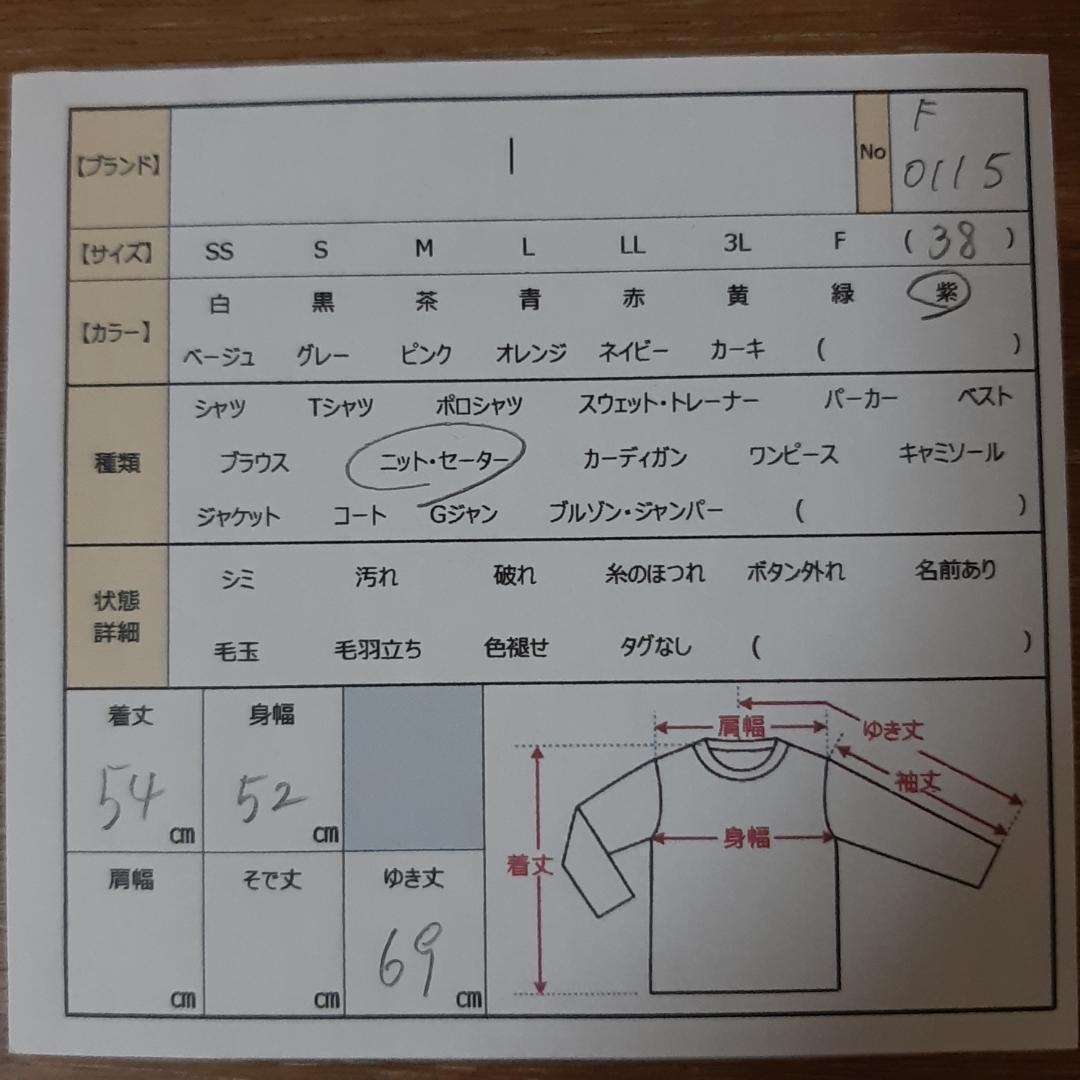 【ブランド】 | No F 0115
【サイズ】 SS S M L LL 3L F ( 38 )
【カラー】 白 黒 茶 青 赤 黄 緑 紫
ベージュ グレー ピンク オレンジ ネイビー カーキ ( )
種類 シャツ Tシャツ ポロシャツ スウェット・トレーナー パーカー ベスト
ブラウス ニット・セーター カーディガン ワンピース キャミソール
ジャケット コート Gジャン ブルゾン・ジャンパー ( )
状態詳細 シミ 汚れ 破れ 糸のほつれ ボタン外れ 名前あり
毛玉 毛羽立ち 色褪せ タグなし ( )
着丈 身幅
54 cm 52 cm
肩幅 そで丈 ゆき丈
cm cm 69 cm
肩幅 ゆき丈
袖丈
身幅
着丈